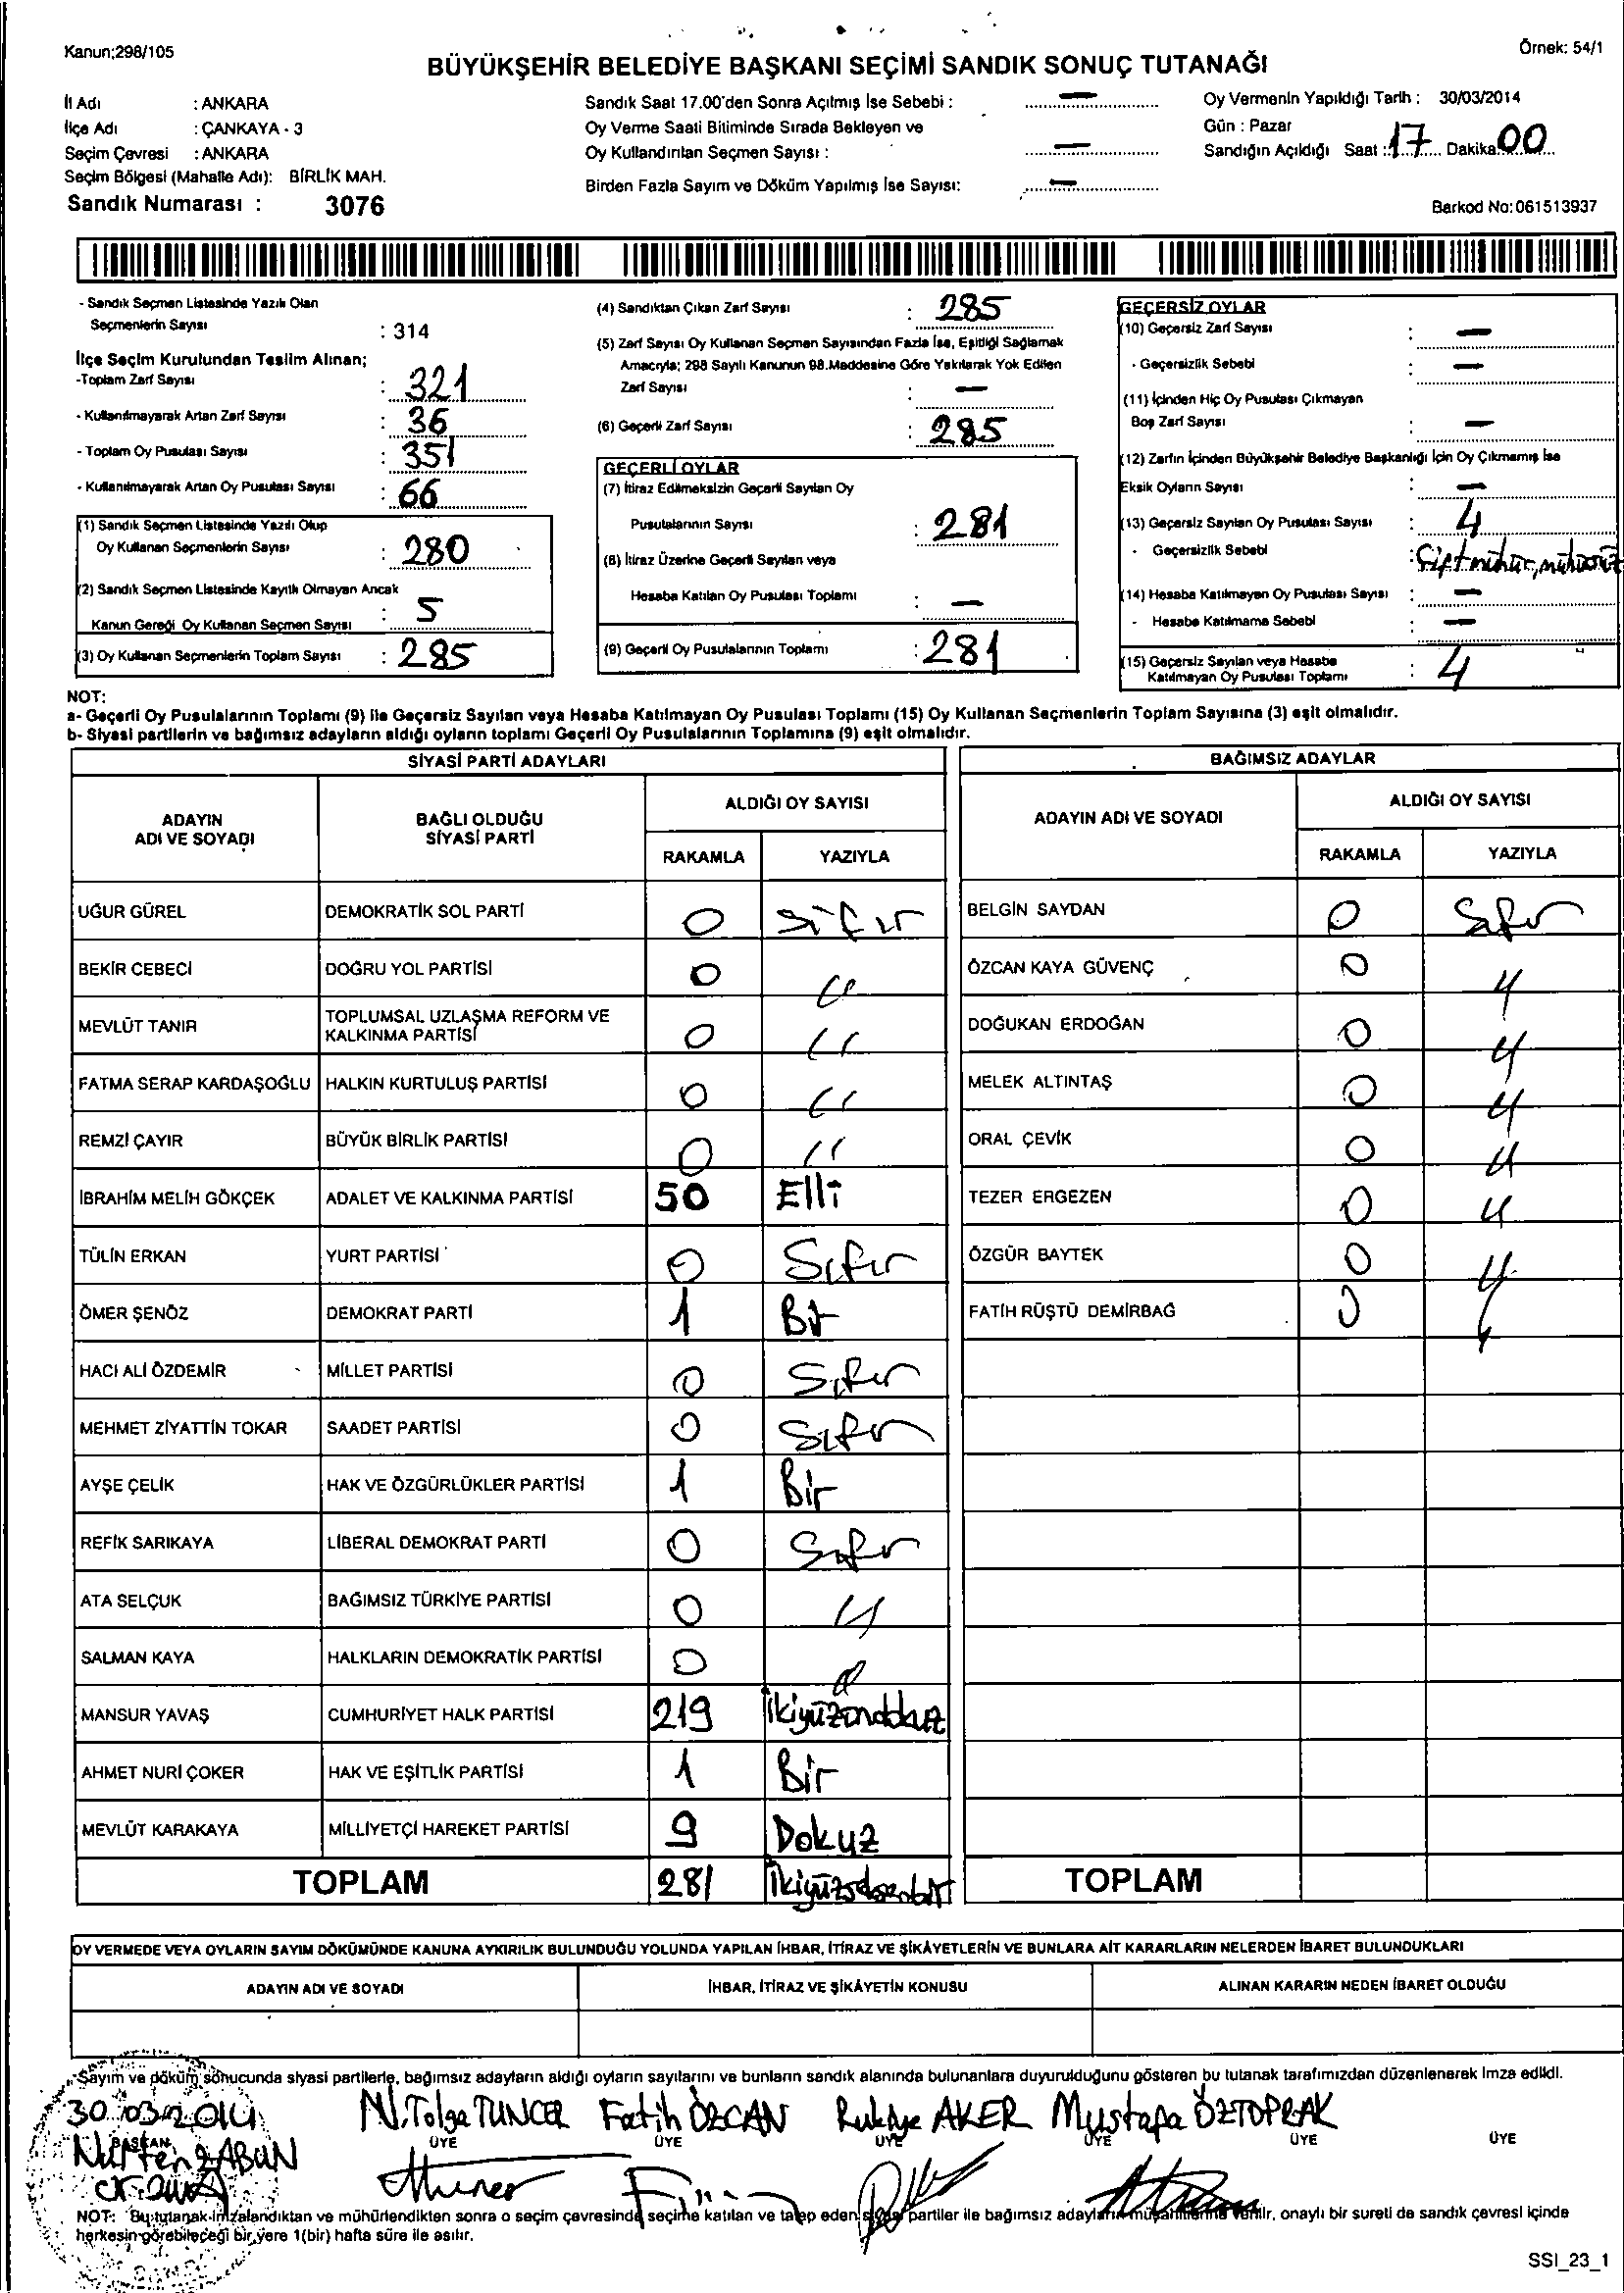 Kanun;298/105
Örnek: 54/1
BÜYÜKŞEHİR BELEDİYE BAŞKANI SEÇİMİ SANDIK SONUÇ TUTANAĞI
İl Adı : ANKARA
İlçe Adı : ÇANKAYA - 3
Seçim Çevresi : ANKARA
Seçim Bölgesi (Mahalle Adı): BİRLİK MAH.
Sandık Numarası : 3076
Sandık Saat 17.00'den Sonra Açılmış İse Sebebi : —
Oy Verme Saati Bitiminde Sırada Bekleyen ve
Oy Kullandırılan Seçmen Sayısı : —
Birden Fazla Sayım ve Döküm Yapılmış İse Sayısı: —
Oy Vermenin Yapıldığı Tarih : 30/03/2014
Gün : Pazar
Sandığın Açıldığı Saat : 17 Dakika 00
Barkod No:061513937
- Sandık Seçmen Listesinde Yazılı Olan
Seçmenlerin Sayısı : 314
İlçe Seçim Kurulundan Teslim Alınan;
-Toplam Zarf Sayısı : 321
- Kullanılmayarak Artan Zarf Sayısı : 36
- Toplam Oy Pusulası Sayısı : 351
- Kullanılmayarak Artan Oy Pusulası Sayısı : 66
(1) Sandık Seçmen Listesinde Yazılı Olup
Oy Kullanan Seçmenlerin Sayısı : 280
(2) Sandık Seçmen Listesinde Kayıtlı Olmayan Ancak
Kanun Gereği Oy Kullanan Seçmen Sayısı : 5
(3) Oy Kullanan Seçmenlerin Toplam Sayısı : 285
(4) Sandıktan Çıkan Zarf Sayısı : 285
(5) Zarf Sayısı Oy Kullanan Seçmen Sayısından Fazla İse, Eşitliği Sağlamak
Amacıyla; 298 Sayılı Kanunun 98.Maddesine Göre Yakılarak Yok Edilen
Zarf Sayısı : —
(6) Geçerli Zarf Sayısı : 285
GEÇERLİ OYLAR
(7) İtiraz Edilmeksizin Geçerli Sayılan Oy
Pusulalarının Sayısı : 281
(8) İtiraz Üzerine Geçerli Sayılan veya
Hesaba Katılan Oy Pusulası Toplamı : —
(9) Geçerli Oy Pusulalarının Toplamı : 281
GEÇERSİZ OYLAR
(10) Geçersiz Zarf Sayısı : —
- Geçersizlik Sebebi : —
(11) İçinden Hiç Oy Pusulası Çıkmayan
Boş Zarf Sayısı : —
(12) Zarfın İçinden Büyükşehir Belediye Başkanlığı İçin Oy Çıkmamış İse
Eksik Oyların Sayısı : —
(13) Geçersiz Sayılan Oy Pusulası Sayısı : 4
- Geçersizlik Sebebi : Çift mühür, mühürsüz
(14) Hesaba Katılmayan Oy Pusulası Sayısı : —
- Hesaba Katılmama Sebebi : —
(15) Geçersiz Sayılan veya Hesaba
Katılmayan Oy Pusulası Toplamı : 4
NOT:
a- Geçerli Oy Pusulalarının Toplamı (9) ile Geçersiz Sayılan veya Hesaba Katılmayan Oy Pusulası Toplamı (15) Oy Kullanan Seçmenlerin Toplam Sayısına (3) eşit olmalıdır.
b- Siyasi partilerin ve bağımsız adayların aldığı oyların toplamı Geçerli Oy Pusulalarının Toplamına (9) eşit olmalıdır.
SİYASİ PARTİ ADAYLARI
ADAYIN ADI VE SOYADI BAĞLI OLDUĞU SİYASİ PARTİ ALDIĞI OY SAYISI
RAKAMLA YAZIYLA
UĞUR GÜREL DEMOKRATİK SOL PARTİ 0 Sıfır
BEKİR CEBECİ DOĞRU YOL PARTİSİ 0 "
MEVLÜT TANIR TOPLUMSAL UZLAŞMA REFORM VE KALKINMA PARTİSİ 0 "
FATMA SERAP KARDAŞOĞLU HALKIN KURTULUŞ PARTİSİ 0 "
REMZİ ÇAYIR BÜYÜK BİRLİK PARTİSİ 0 "
İBRAHİM MELİH GÖKÇEK ADALET VE KALKINMA PARTİSİ 50 Elli
TÜLİN ERKAN YURT PARTİSİ 0 Sıfır
ÖMER ŞENÖZ DEMOKRAT PARTİ 1 Bir
HACI ALİ ÖZDEMİR MİLLET PARTİSİ 0 Sıfır
MEHMET ZİYATTİN TOKAR SAADET PARTİSİ 0 Sıfır
AYŞE ÇELİK HAK VE ÖZGÜRLÜKLER PARTİSİ 1 Bir
REFİK SARIKAYA LİBERAL DEMOKRAT PARTİ 0 Sıfır
ATA SELÇUK BAĞIMSIZ TÜRKİYE PARTİSİ 0 "
SALMAN KAYA HALKLARIN DEMOKRATİK PARTİSİ 0 "
MANSUR YAVAŞ CUMHURİYET HALK PARTİSİ 219 İkiyüzondokuz
AHMET NURİ ÇOKER HAK VE EŞİTLİK PARTİSİ 1 Bir
MEVLÜT KARAKAYA MİLLİYETÇİ HAREKET PARTİSİ 9 Dokuz
TOPLAM 281 İkiyüzseksenbir
BAĞIMSIZ ADAYLAR
ADAYIN ADI VE SOYADI ALDIĞI OY SAYISI
RAKAMLA YAZIYLA
BELGİN SAYDAN 0 Sıfır
ÖZCAN KAYA GÜVENÇ 0 "
DOĞUKAN ERDOĞAN 0 "
MELEK ALTINTAŞ 0 "
ORAL ÇEVİK 0 "
TEZER ERGEZEN 0 "
ÖZGÜR BAYTEK 0 "
FATİH RÜŞTÜ DEMİRBAĞ 0 "
TOPLAM
OY VERMEDE VEYA OYLARIN SAYIM DÖKÜMÜNDE KANUNA AYKIRILIK BULUNDUĞU YOLUNDA YAPILAN İHBAR, İTİRAZ VE ŞİKÂYETLERİN VE BUNLARA AİT KARARLARIN NELERDEN İBARET BULUNDUKLARI
ADAYIN ADI VE SOYADI İHBAR, İTİRAZ VE ŞİKÂYETİN KONUSU ALINAN KARARIN NEDEN İBARET OLDUĞU
Sayım ve döküm sonucunda siyasi partilerle, bağımsız adayların aldığı oyların sayılarını ve bunların sandık alanında bulunanlara duyurulduğunu gösteren bu tutanak tarafımızdan düzenlenerek imza edildi.
30.03.2014 N.Tolga TUNCER Fatih ÖZCAN Rukiye AKER Mustafa ÖZTOPRAK
BAŞKAN ÜYE ÜYE ÜYE ÜYE ÜYE ÜYE
Nurten ZABUN
NOT: Bu tutanak imzalandıktan ve mühürlendikten sonra o seçim çevresinde seçime katılan ve talep eden siyasi partiler ile bağımsız adayların müşahitlerine verilir, onaylı bir sureti de sandık çevresi içinde
herkesin görebileceği bir yere 1(bir) hafta süre ile asılır.
SSI_23_1